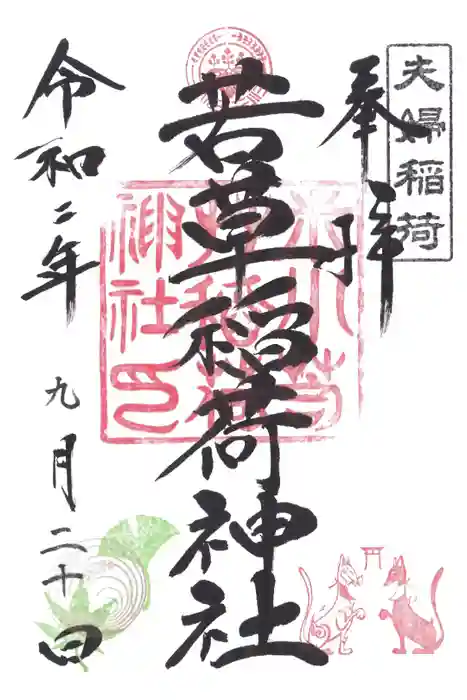 夫婦稲荷
奉拝
若草稲荷神社
神社印
令和二年
九月二十日